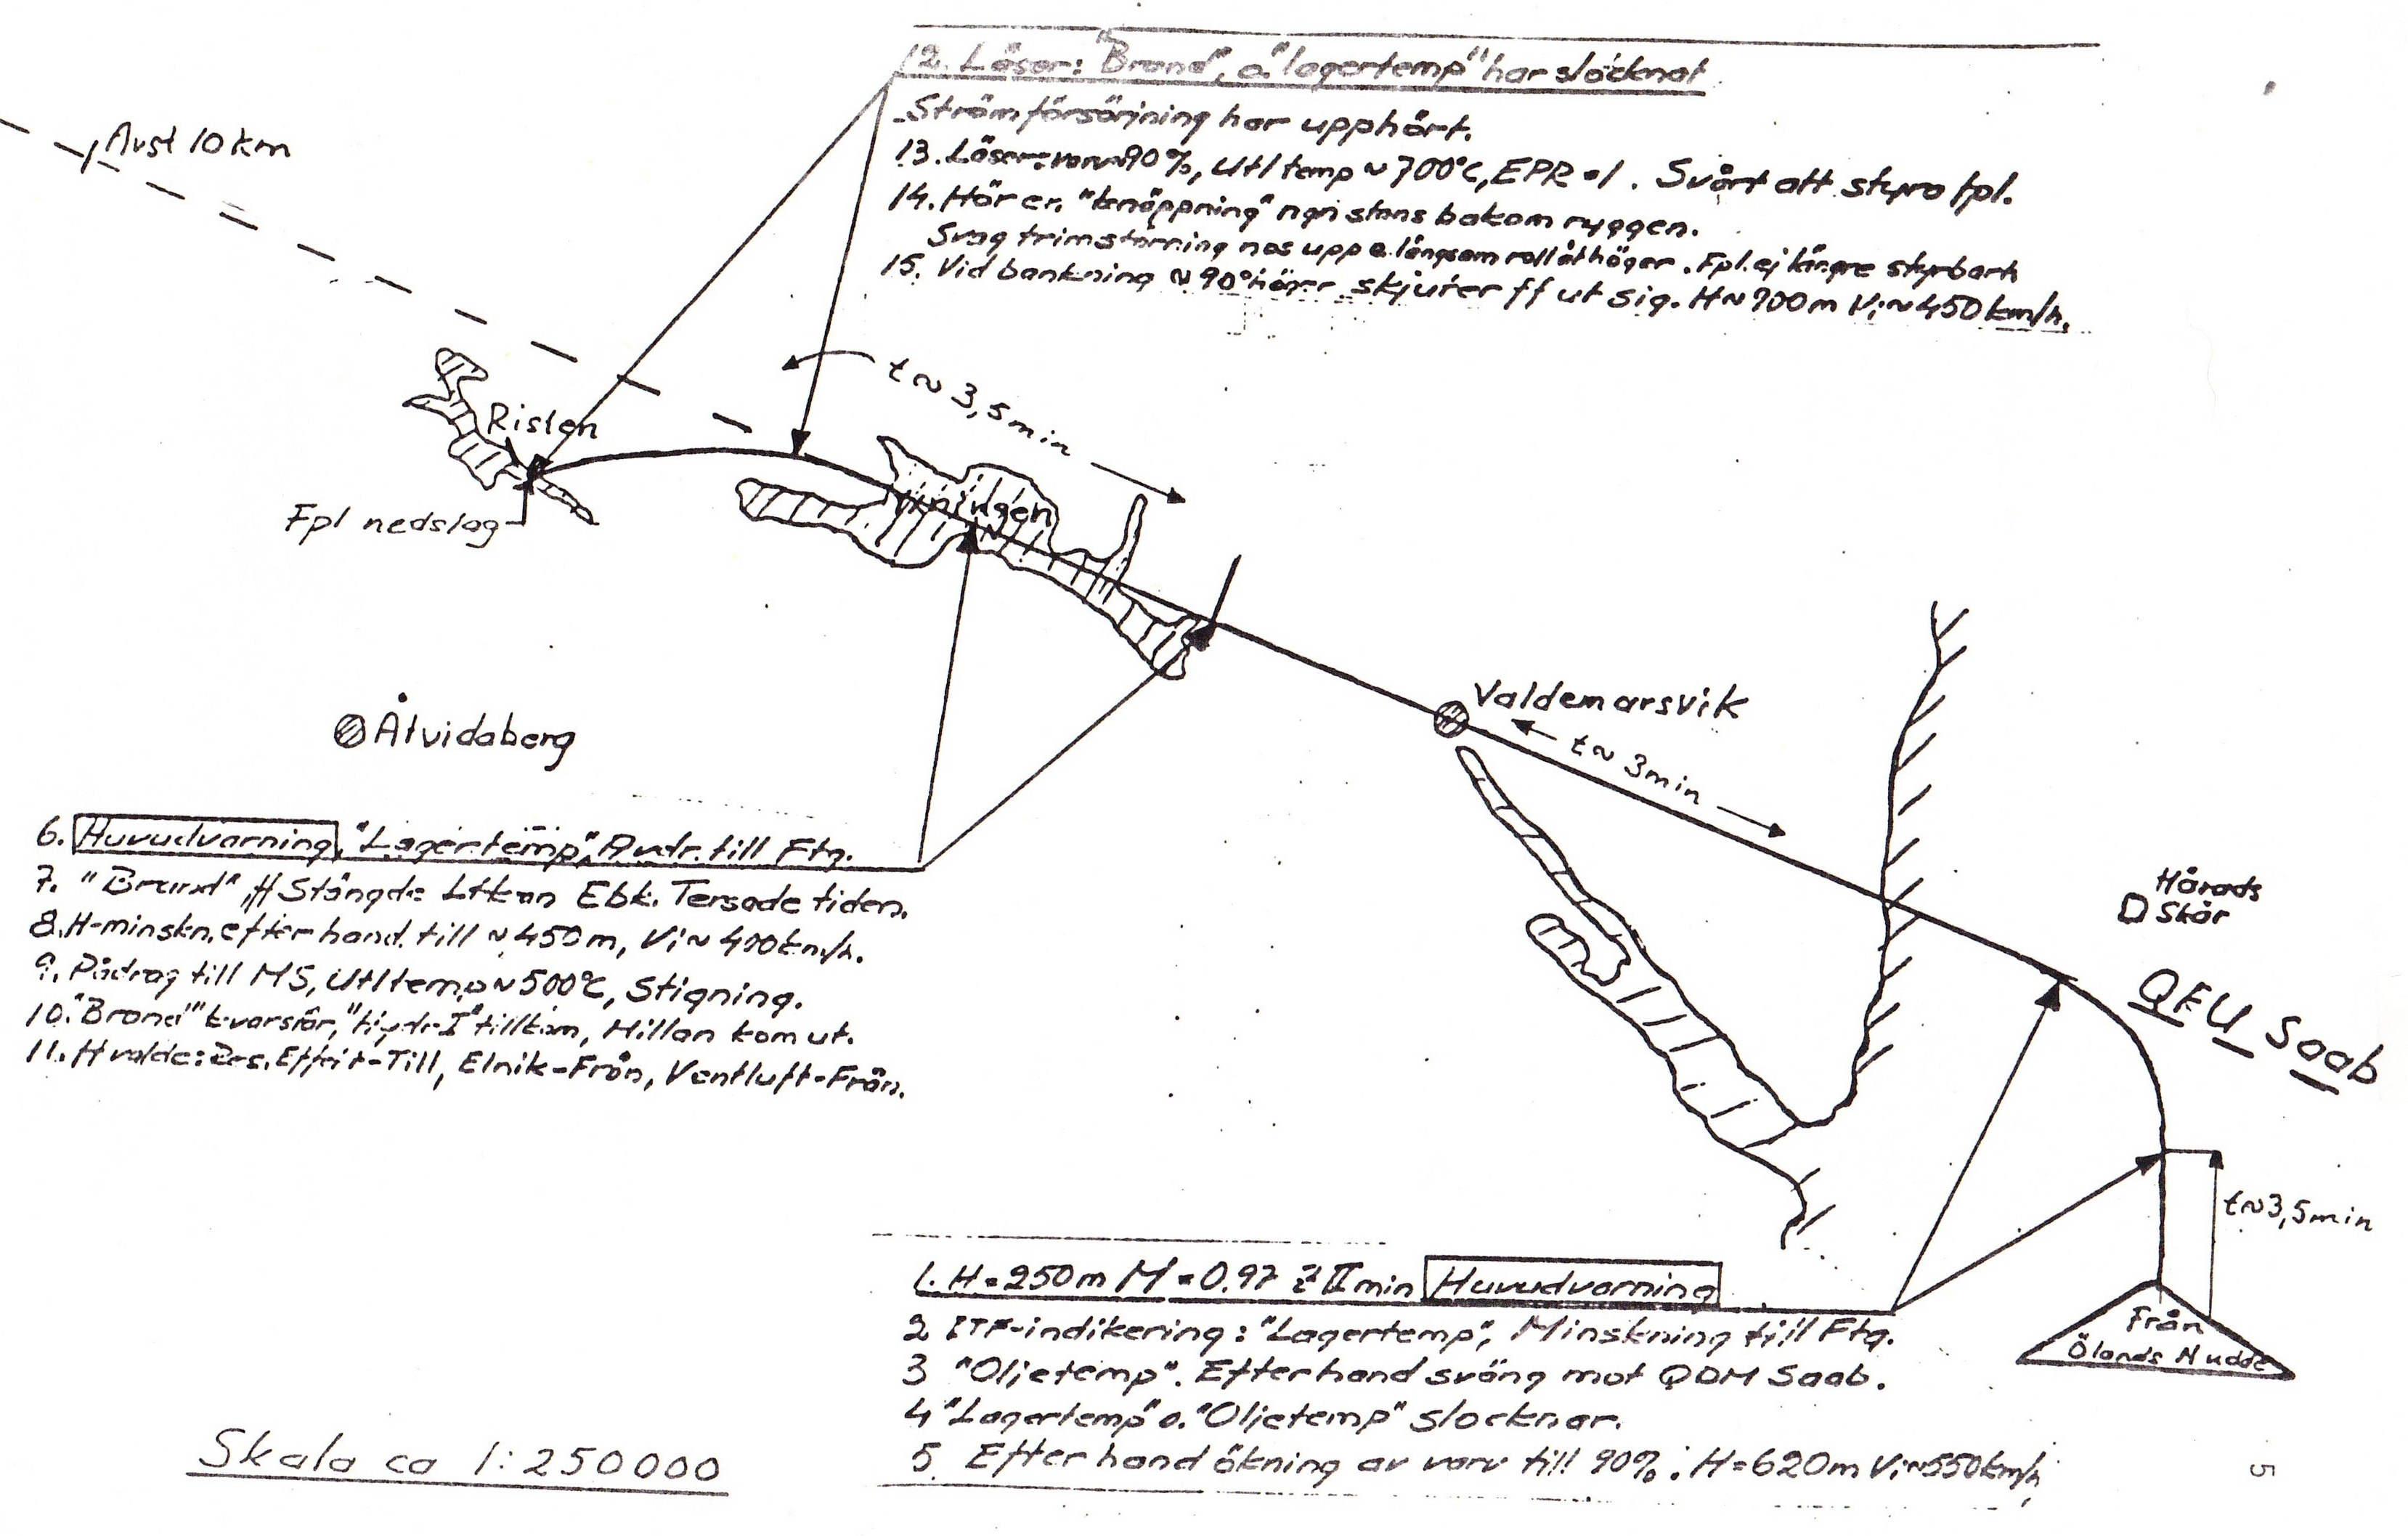 12. Läser: "Brand", o. "lagertemp" har slocknat
Strömförsörjning har upphört.
13. Läser: varv≈90%, Utl temp ~ 700°C, EPR=1. Svårt att styra fpl.
14. Hör en "knäppning" ngnstans bakom ryggen.
Svag trimstörning tas upp o. långsam roll åt höger. Fpl. ej längre styrbart
15. Vid bankning ~90° höger skjuter ff ut sig. H~900m Vi~450km/h.
Avst 10 km
t~ 3,5 min
Risten
Fpl nedslag
Yxningen
Valdemarsvik
t~ 3min
Åtvidaberg
Hårads
Skär
QFU Saab
6. Huvudvarning, "Lagertemp", Avdr. till Ftg.
7. "Brand", ff Stängde Ltkran Ebk. Tersade tiden.
8. H-minskn. efter hand till ~450m, Vi~400km/h.
9. Pådrag till MS, Utltemp~500°C, Stigning.
10. "Brand" kvarstår, "Hydr I" tillkom, Hillan kom ut.
11. H valde: Res. Effekt-Till, Elnik-Från, Ventluft-Från.
t~3,5min
Från
Ölands N udde
1. H=250m M=0.97 Z II min Huvudvarning
2 ITF-indikering: "Lagertemp", Minskning till Ftg.
3 "Oljetemp". Efterhand sväng mot QDM Saab.
4 "Lagertemp" o. "Oljetemp" slocknar.
5. Efter hand ökning av varv till 90%. H=620m Vi~550km/h,
Skala ca 1:250000
5